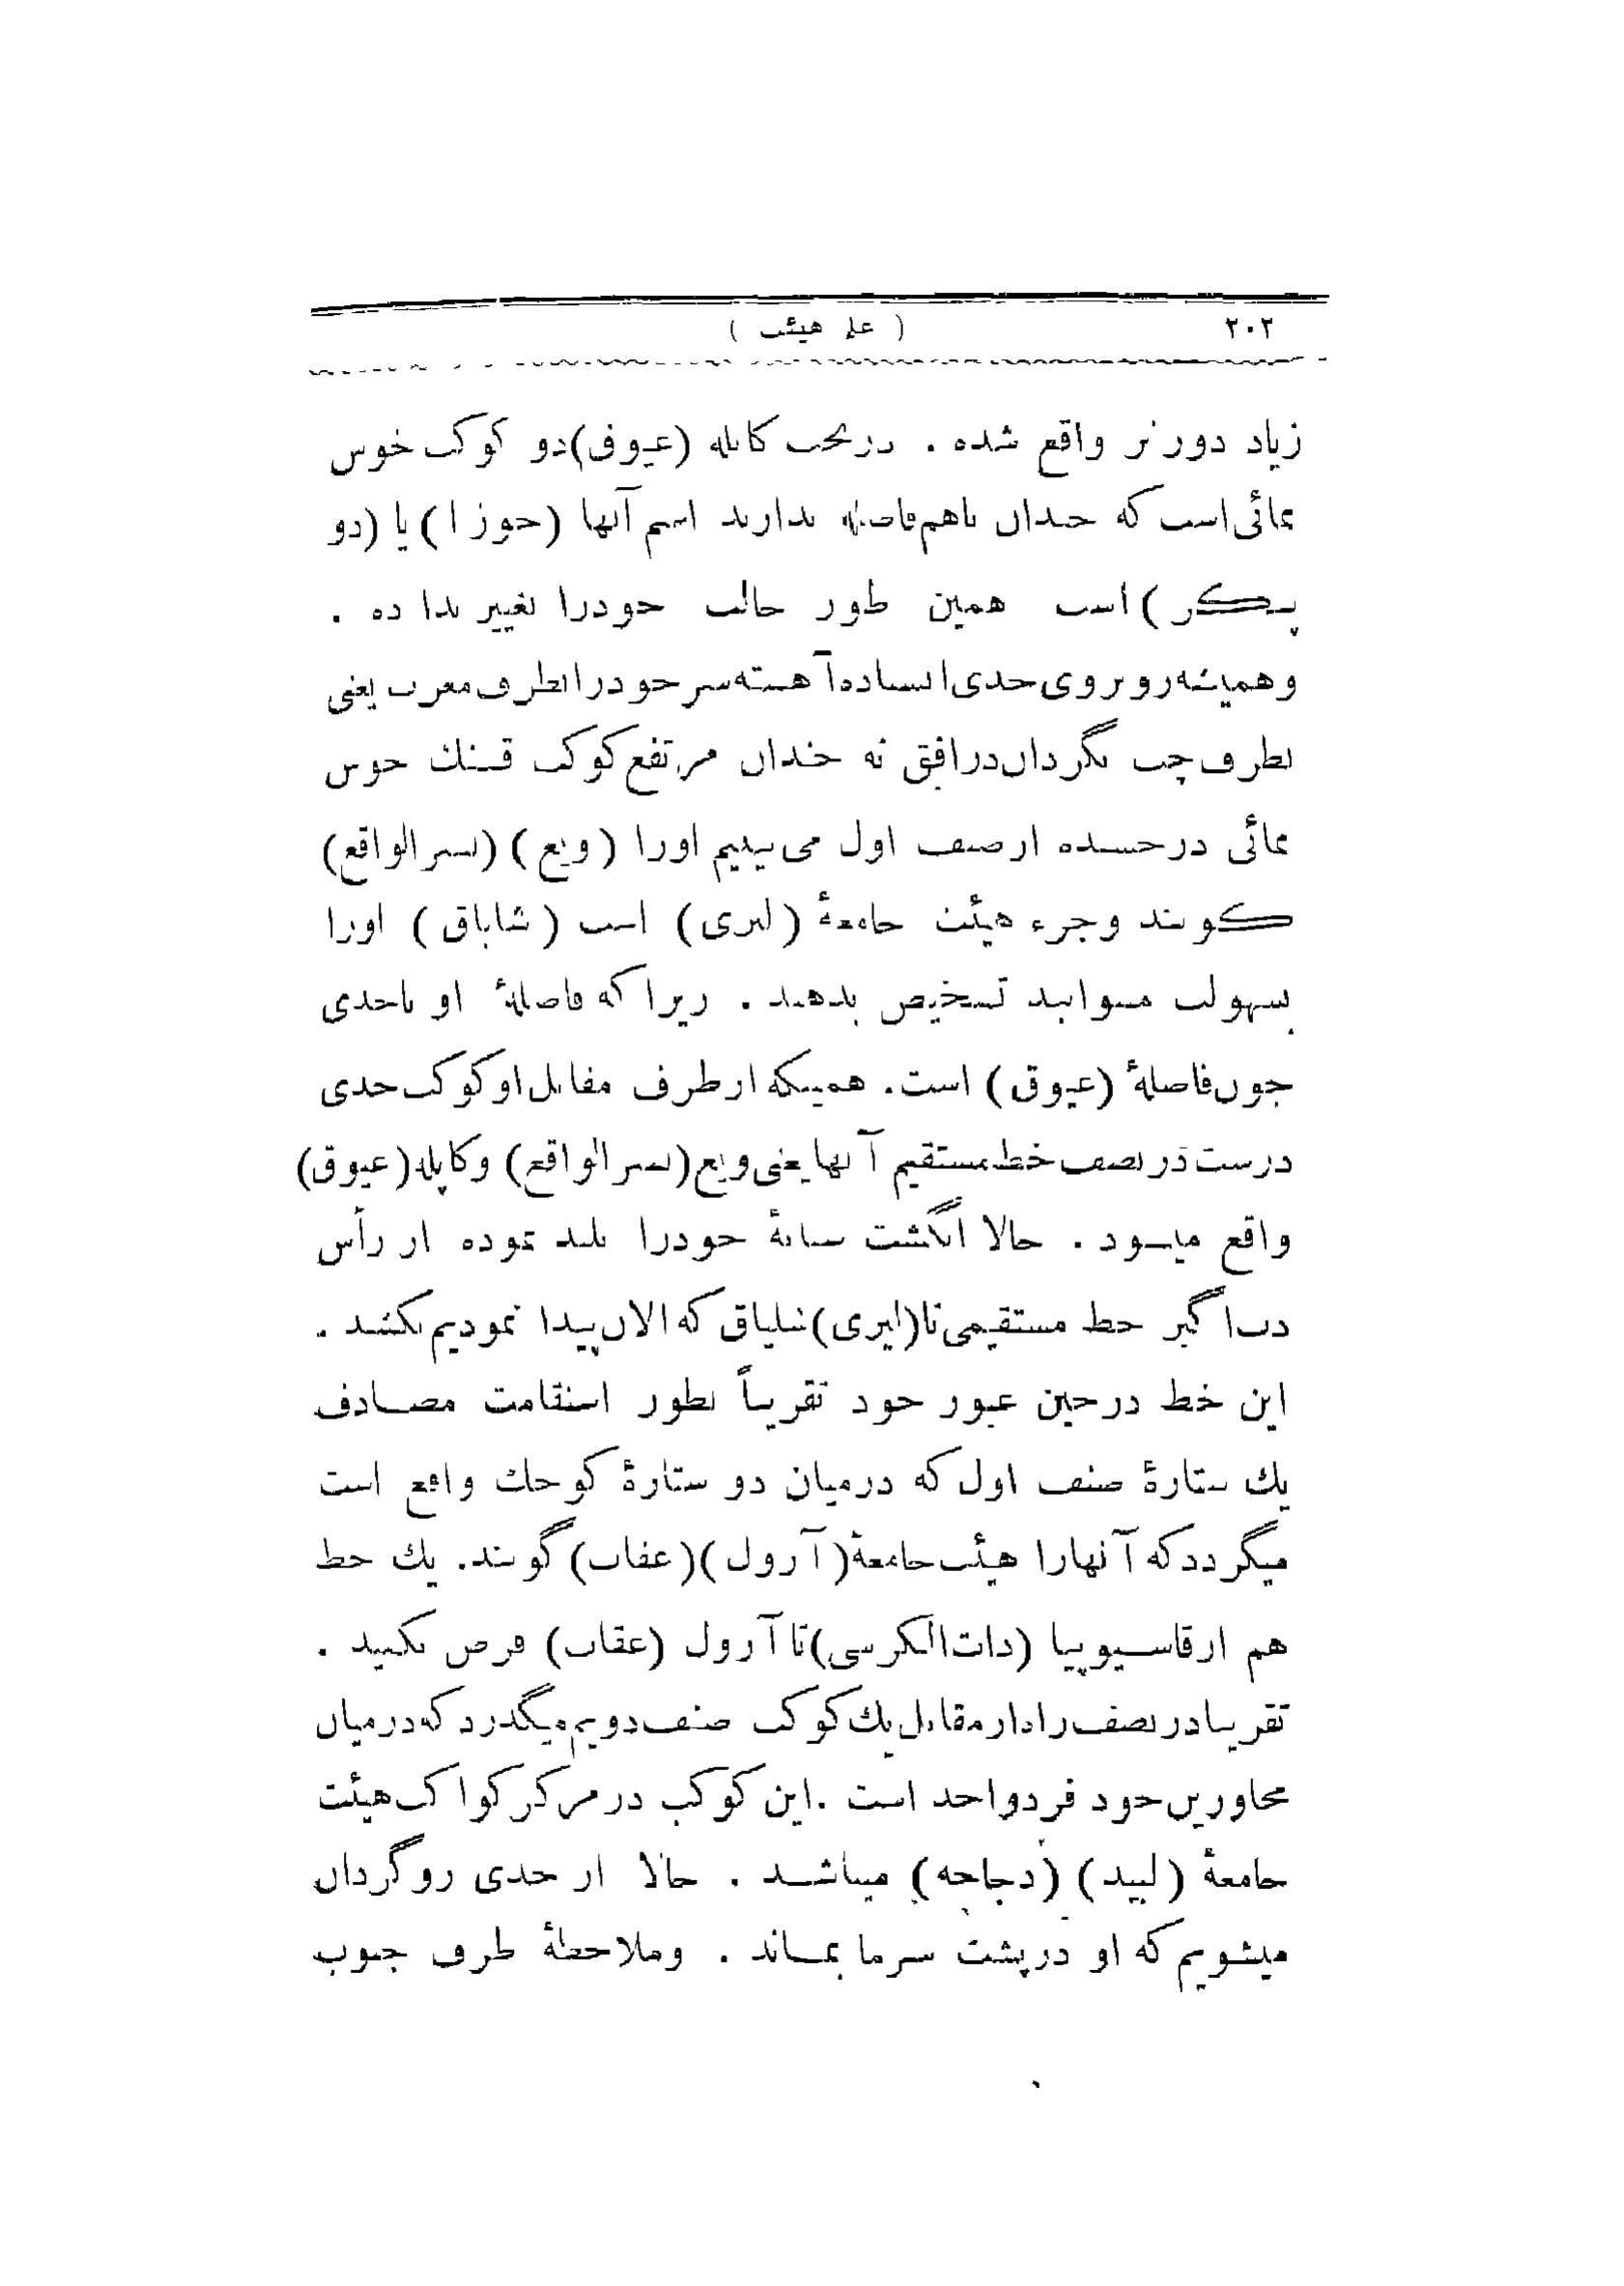 ۲۰۲ ( علم هیئت )
زیاد دورتر واقع شده . درتحت کاپله (عیوق) دو کوکب خوش
نمائی است که چندان باهم فاصله ندارند اسم آنها (جوزا) یا (دو
پیکر) است همین طور حالت خودرا تغییر نداده .
وهمیشه روبروی جدی ایستاده آهسته سر خودرا بطرف مغرب یعنی
بطرف چپ بگردان درافق نه چندان مرتفع کوکب قشنك خوش
نمائی درخشنده ازصنف اول می بینیم اورا (ویع) (نسرالواقع)
کویند وجزء هیئت جامعهٔ (لیری) است (شلیاق) اورا
بسهولت میتوانید تشخیص بدهید . زیرا که فاصلهٔ او باجدی
چون فاصلهٔ (عیوق) است. همینکه ازطرف مقابل او کوکب جدی
درست در نصف خط مستقیم آنها یعنی ویع (نسرالواقع) وکاپله (عیوق)
واقع میشود . حالا انگشت سبابهٔ خودرا بلند نموده از رأس
دب اکبر خط مستقیمی تا (لیری) شلیاق که الان پیدا نمودیم بکشید .
این خط درحین عبور خود تقریباً بطور استقامت مصادف
یك ستارهٔ صنف اول که درمیان دو ستارهٔ کوچك واقع است
میگردد که آنهارا هیئت جامعهٔ (آرول) (عقاب) گویند. یك خط
هم ازقاسیوپیا (ذات الکرسی) تا آرول (عقاب) فرض بکنید .
تقریبا درنصف راه از مقابل یك کوکب صنف دویم میگذرد که درمیان
مجاورین خود فردواحد است .این کوکب درمرکز کواکب هیئت
جامعهٔ (لبید) (دجاجه) میباشد . حالا از جدی روگردان
میشویم که او درپشت سرما بماند . وملاحظهٔ طرف جنوب